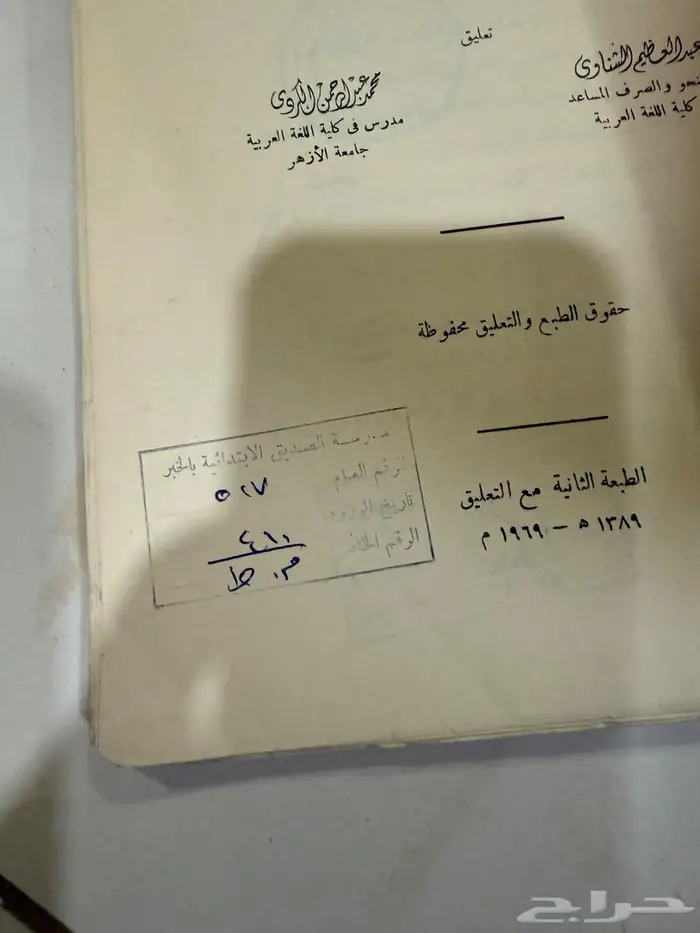 تعليق
عبد العظيم الشناوى
نحو والصرف المساعد
كلية اللغة العربية
محمد عبد الرحمن الكردى
مدرس فى كلية اللغة العربية
جامعة الأزهر
حقوق الطبع والتعليق محفوظة
الطبعة الثانية مع التعليق
١٣٨٩ ه - ١٩٦٩ م
مدرسة الصديق الابتدائية بالخبر
الرقم العام ٥٢٧
تاريخ الورود
الرقم الخاص ٤١٠
حراج